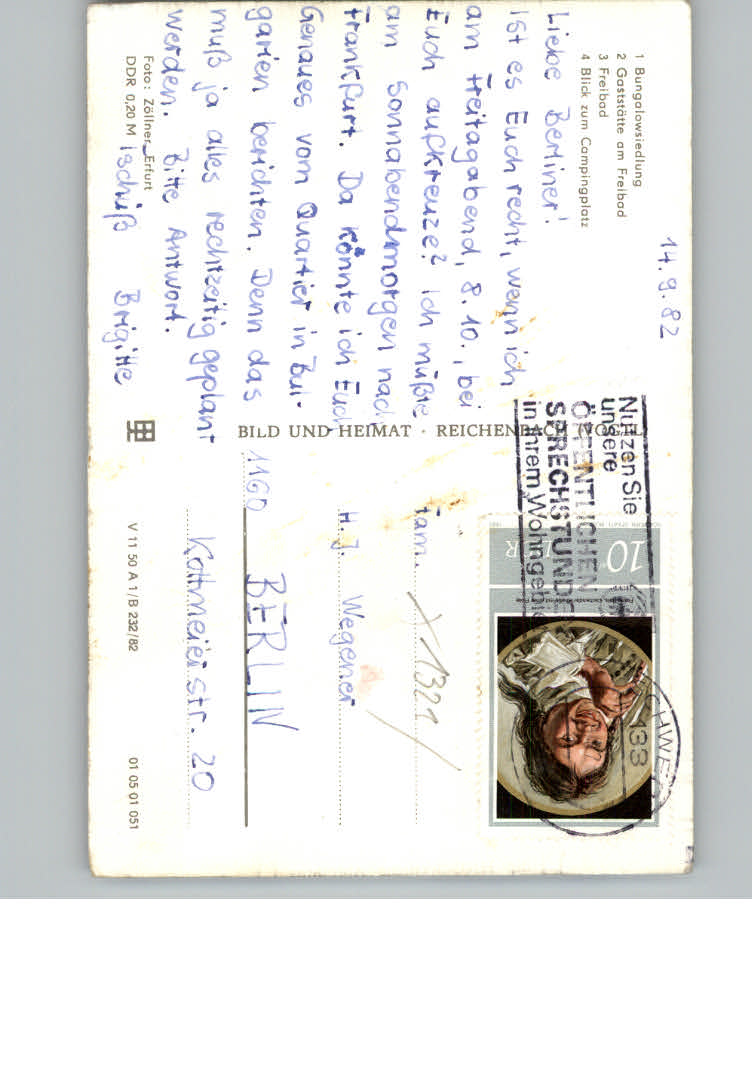 1 Bungalowsiedlung
2 Gaststätte am Freibad
3 Freibad
4 Blick zum Campingplatz
14.9.82
Liebe Berliner!
Ist es Euch recht, wenn ich
am Freitagabend, 8.10., bei
Euch aufkreuze? Ich müßte
am Sonnabendmorgen nach
Frankfurt. Da könnte ich Euch
Genaues vom Quartier in Bul-
garien berichten. Denn das
muß ja alles rechtzeitig geplant
werden. Bitte Antwort.
Tschüß Brigitte
Foto: Zöllner, Erfurt
DDR 0,20 M
BILD UND HEIMAT · REICHENBACH (VOGTL)
V 11 50 A 1/B 232/82
01 05 01 051
Nutzen Sie
unsere
ÖFFENTLICHEN
SPRECHSTUNDE
in Ihrem Wohngebie
10
DDR
133
X 1321
Fam.
H. J. Wegener
1160 BERLIN
Kottmeierstr. 20